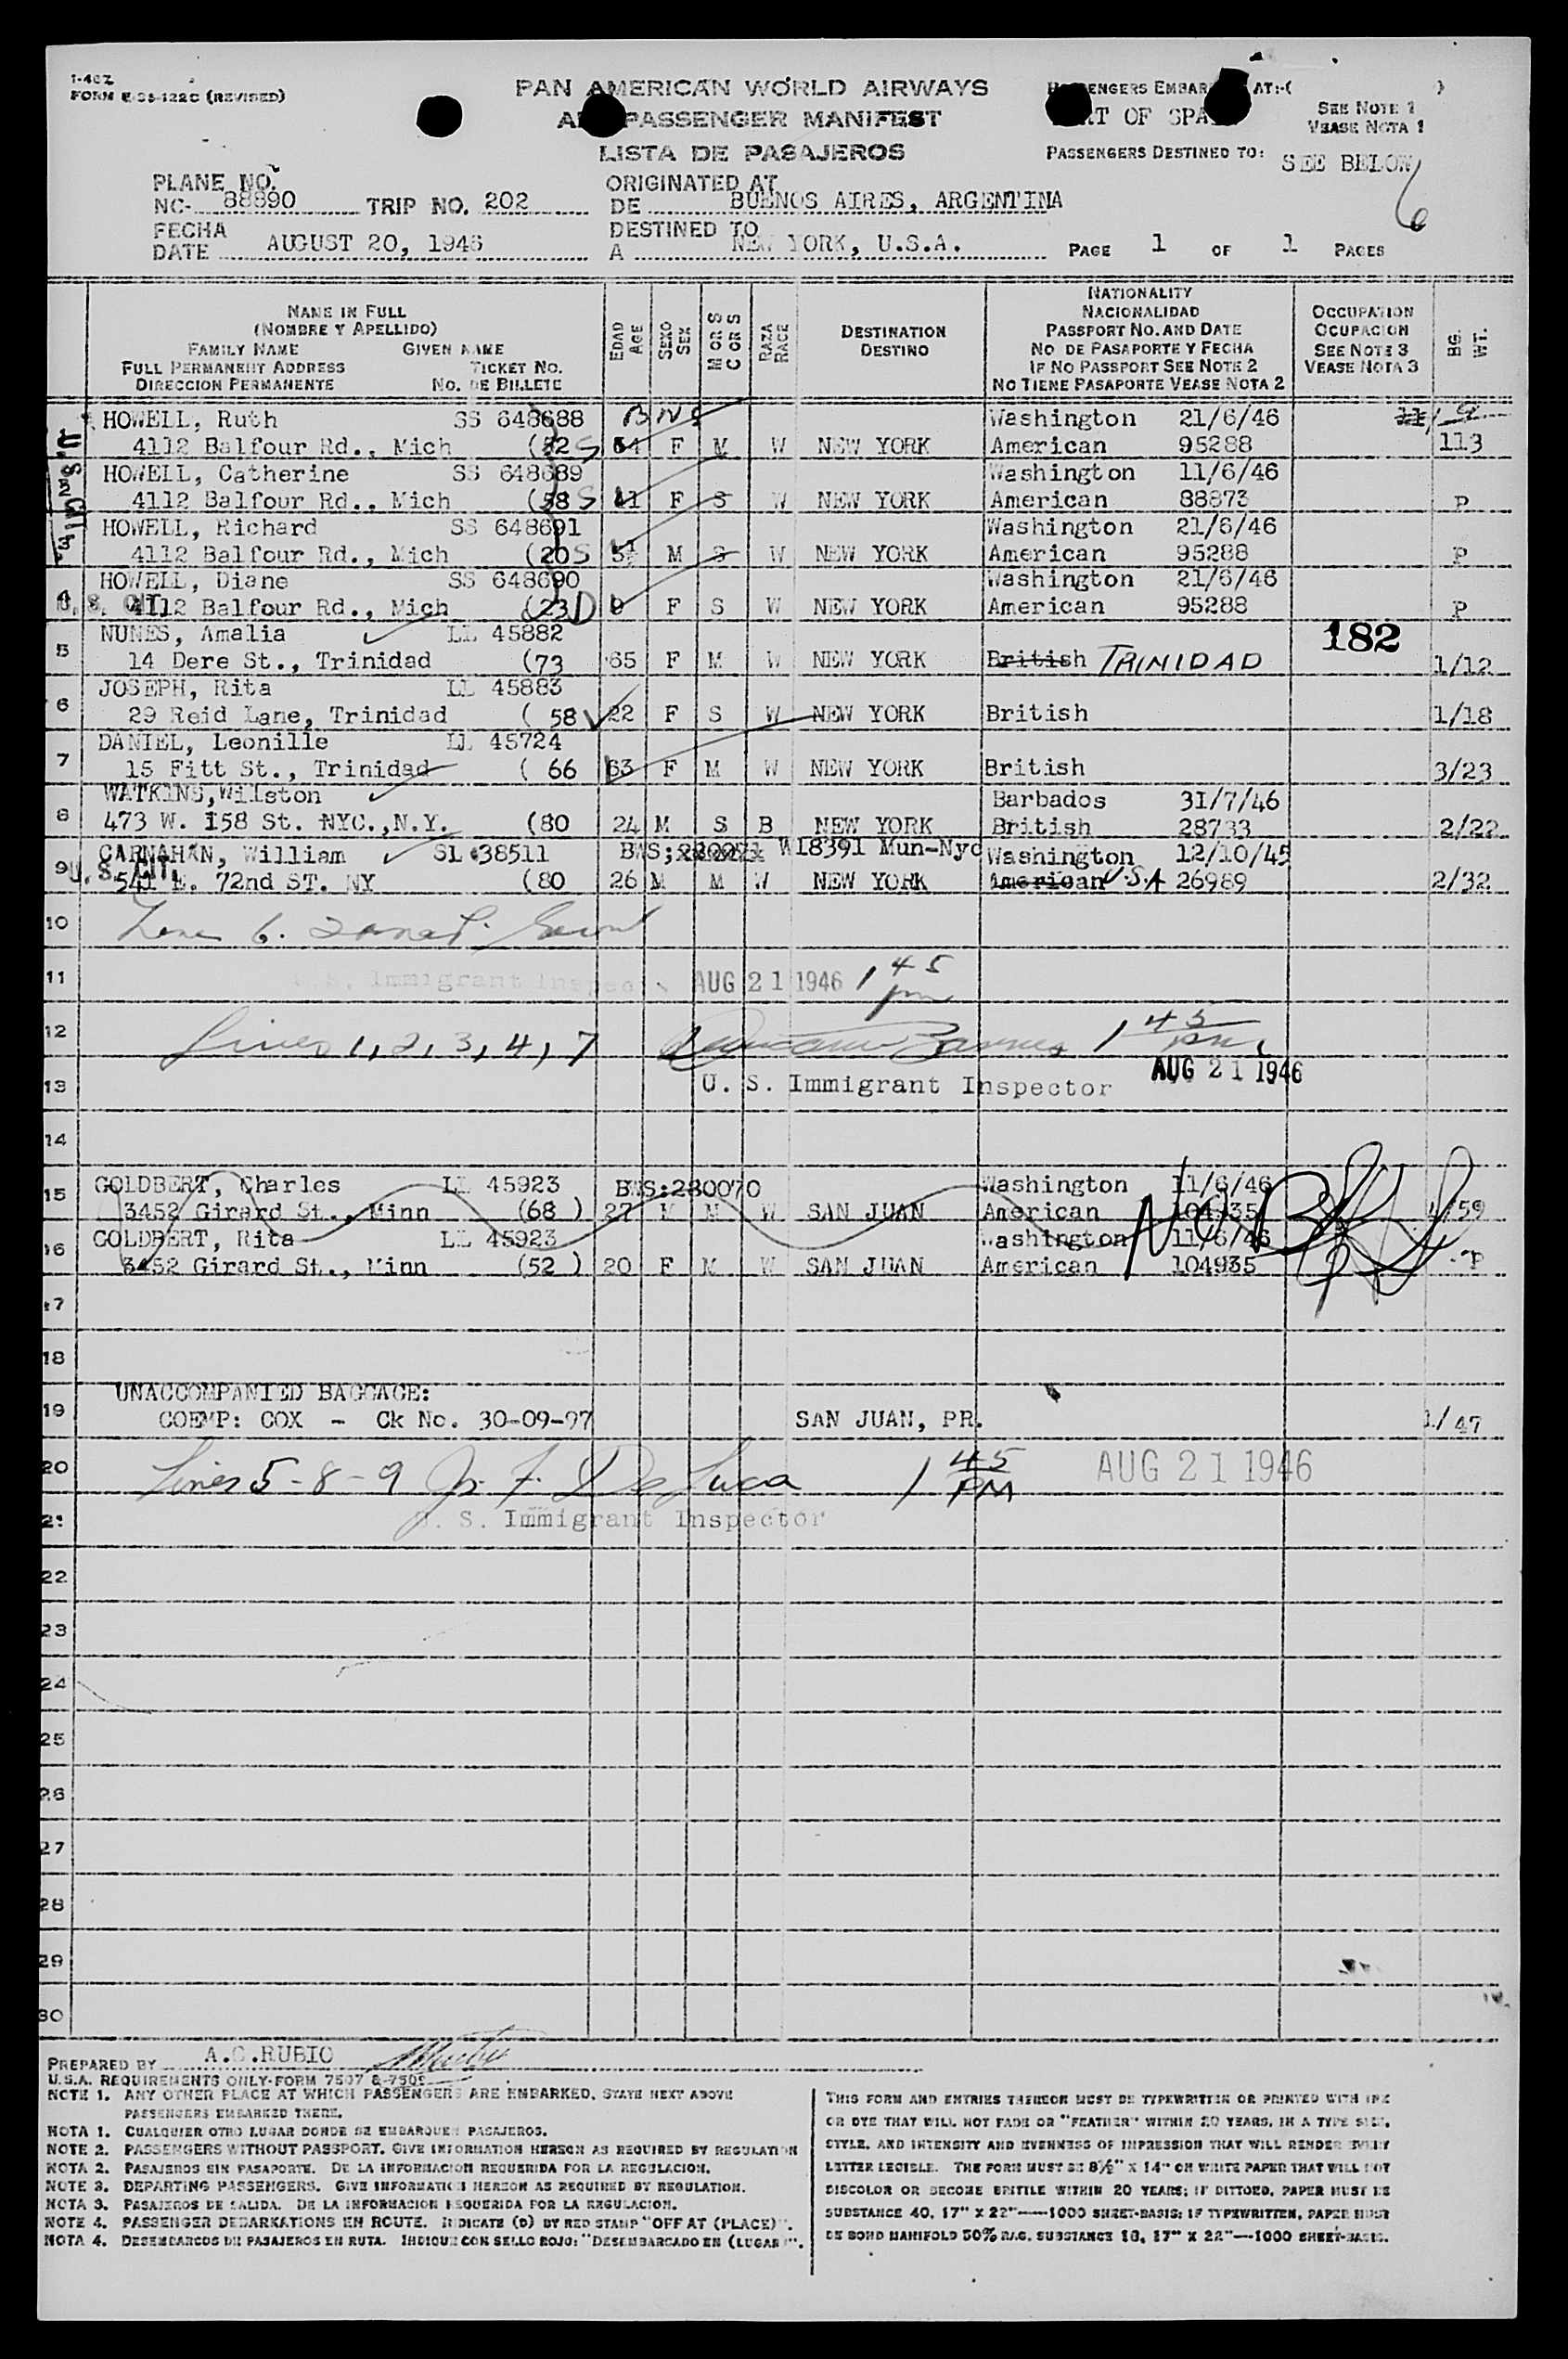 I-407
FORM E-SS-122C (REVISED)
PAN AMERICAN WORLD AIRWAYS
PASSENGER MANIFEST
LISTA DE PASAJEROS
AT:-( )
OF
SEE NOTE 1
VEASE NOTA 1
PASSENGERS DESTINED TO: SEE BELOW
6
PLANE NO.
NC- 88890 TRIP NO. 202
ORIGINATED AT
DE BUENOS AIRES, ARGENTINA
FECHA
DATE AUGUST 20, 1946
DESTINED TO
A NEW YORK, U.S.A.
PAGE 1 OF 1 PAGES
NAME IN FULL
(NOMBRE Y APELLIDO)
FAMILY NAME GIVEN NAME
FULL PERMANENT ADDRESS TICKET NO.
DIRECCION PERMANENTE NO. DE BILLETE
EDAD
AGE
SEXO
SEX
M OR S
C OR S
RAZA
RACE
DESTINATION
DESTINO
NATIONALITY
NACIONALIDAD
PASSPORT NO. AND DATE
NO DE PASAPORTE Y FECHA
IF NO PASSPORT SEE NOTE 2
NO TIENE PASAPORTE VEASE NOTA 2
OCCUPATION
OCUPACION
SEE NOTE 3
VEASE NOTA 3
BG.
WT.
HOWELL, Ruth SS 648688 Washington 21/6/46
4112 Balfour Rd., Mich (52 S 34 F M W NEW YORK American 95288 113
HOWELL, Catherine SS 648689 Washington 11/6/46
4112 Balfour Rd., Mich (58 S 11 F S W NEW YORK American 88873 P
HOWELL, Richard SS 648691 Washington 21/6/46
4112 Balfour Rd., Mich (20 S 5½ M S W NEW YORK American 95288 P
HOWELL, Diane SS 648690 Washington 21/6/46
4 U. S. CIT. 4112 Balfour Rd., Mich (23 D 9 F S W NEW YORK American 95288 P
NUNES, Amalia LL 45882 182
5 14 Dere St., Trinidad (73 65 F M W NEW YORK British TRINIDAD 1/12
JOSEPH, Rita LL 45883
6 29 Reid Lane, Trinidad ( 58 22 F S W NEW YORK British 1/18
DANIEL, Leonille LL 45724
7 15 Fitt St., Trinidad ( 66 63 F M W NEW YORK British 3/23
WATKINS, Wilston Barbados 31/7/46
8 473 W. 158 St. NYC.,N.Y. (80 24 M S B NEW YORK British 28733 2/22
CARNAHAN, William SL 38511 BWS; W18391 Mun-Nyc Washington 12/10/45
9 U. S. CIT. 541 E. 72nd ST. NY (80 26 M M W NEW YORK American U.S.A 26989 2/32
10
11 U. S. Immigrant Inspector AUG 21 1946 1 45 pm
12 Lines 1, 2, 3, 4, 7 1 45 pm
13 U. S. Immigrant Inspector AUG 21 1946
14
GOLDBERT, Charles LL 45923 BWS:280070 Washington 11/6/46
15 3452 Girard St., Minn (68 ) 27 M M W SAN JUAN American 104935 1/59
GOLDBERT, Rita LL 45923 Washington 11/6/46
16 3452 Girard St., Minn (52 ) 20 F M W SAN JUAN American 104935 P
17
18
UNACCOMPANIED BAGGAGE:
19 COEMP: COX - Ck No. 30-09-97 SAN JUAN, PR. 1/47
20 Lines 5-8-9 De Luca 1 45 PM AUG 21 1946
21 U. S. Immigrant Inspector
22
23
24
25
26
27
28
29
30
PREPARED BY A.C.RUBIO
U.S.A. REQUIREMENTS ONLY-FORM 7507 & 7509
NOTE 1. ANY OTHER PLACE AT WHICH PASSENGERS ARE EMBARKED, STATE NEXT ABOVE
PASSENGERS EMBARKED THERE.
NOTA 1. CUALQUIER OTRO LUGAR DONDE SE EMBARQUEN PASAJEROS.
NOTE 2. PASSENGERS WITHOUT PASSPORT. GIVE INFORMATION HEREON AS REQUIRED BY REGULATION
NOTA 2. PASAJEROS SIN PASAPORTE. DE LA INFORMACION REQUERIDA FOR LA REGULACION.
NOTE 3. DEPARTING PASSENGERS. GIVE INFORMATION HEREON AS REQUIRED BY REGULATION.
NOTA 3. PASAJEROS DE SALIDA. DE LA INFORMACION REQUERIDA FOR LA REGULACION.
NOTE 4. PASSENGER DEBARKATIONS EN ROUTE. INDICATE (D) BY RED STAMP "OFF AT (PLACE)".
NOTA 4. DESEMBARCOS DE PASAJEROS EN RUTA. INDIQUE CON SELLO ROJO: "DESEMBARCADO EN (LUGAR)".
THIS FORM AND ENTRIES THEREON MUST BE TYPEWRITTEN OR PRINTED WITH INK
OR DYE THAT WILL NOT FADE OR "FEATHER" WITHIN 20 YEARS, IN A TYPE SIZE,
STYLE, AND INTENSITY AND EVENNESS OF IMPRESSION THAT WILL RENDER EVERY
LETTER LEGIBLE. THE FORM MUST BE 8½" X 14" ON WHITE PAPER THAT WILL NOT
DISCOLOR OR BECOME BRITTLE WITHIN 20 YEARS; IF DITTOED, PAPER MUST BE
SUBSTANCE 40, 17" X 22"—1000 SHEET-BASIS; IF TYPEWRITTEN, PAPER MUST
BE BOND MANIFOLD 50% RAG, SUBSTANCE 16, 17" X 22"—1000 SHEET-BASIS.